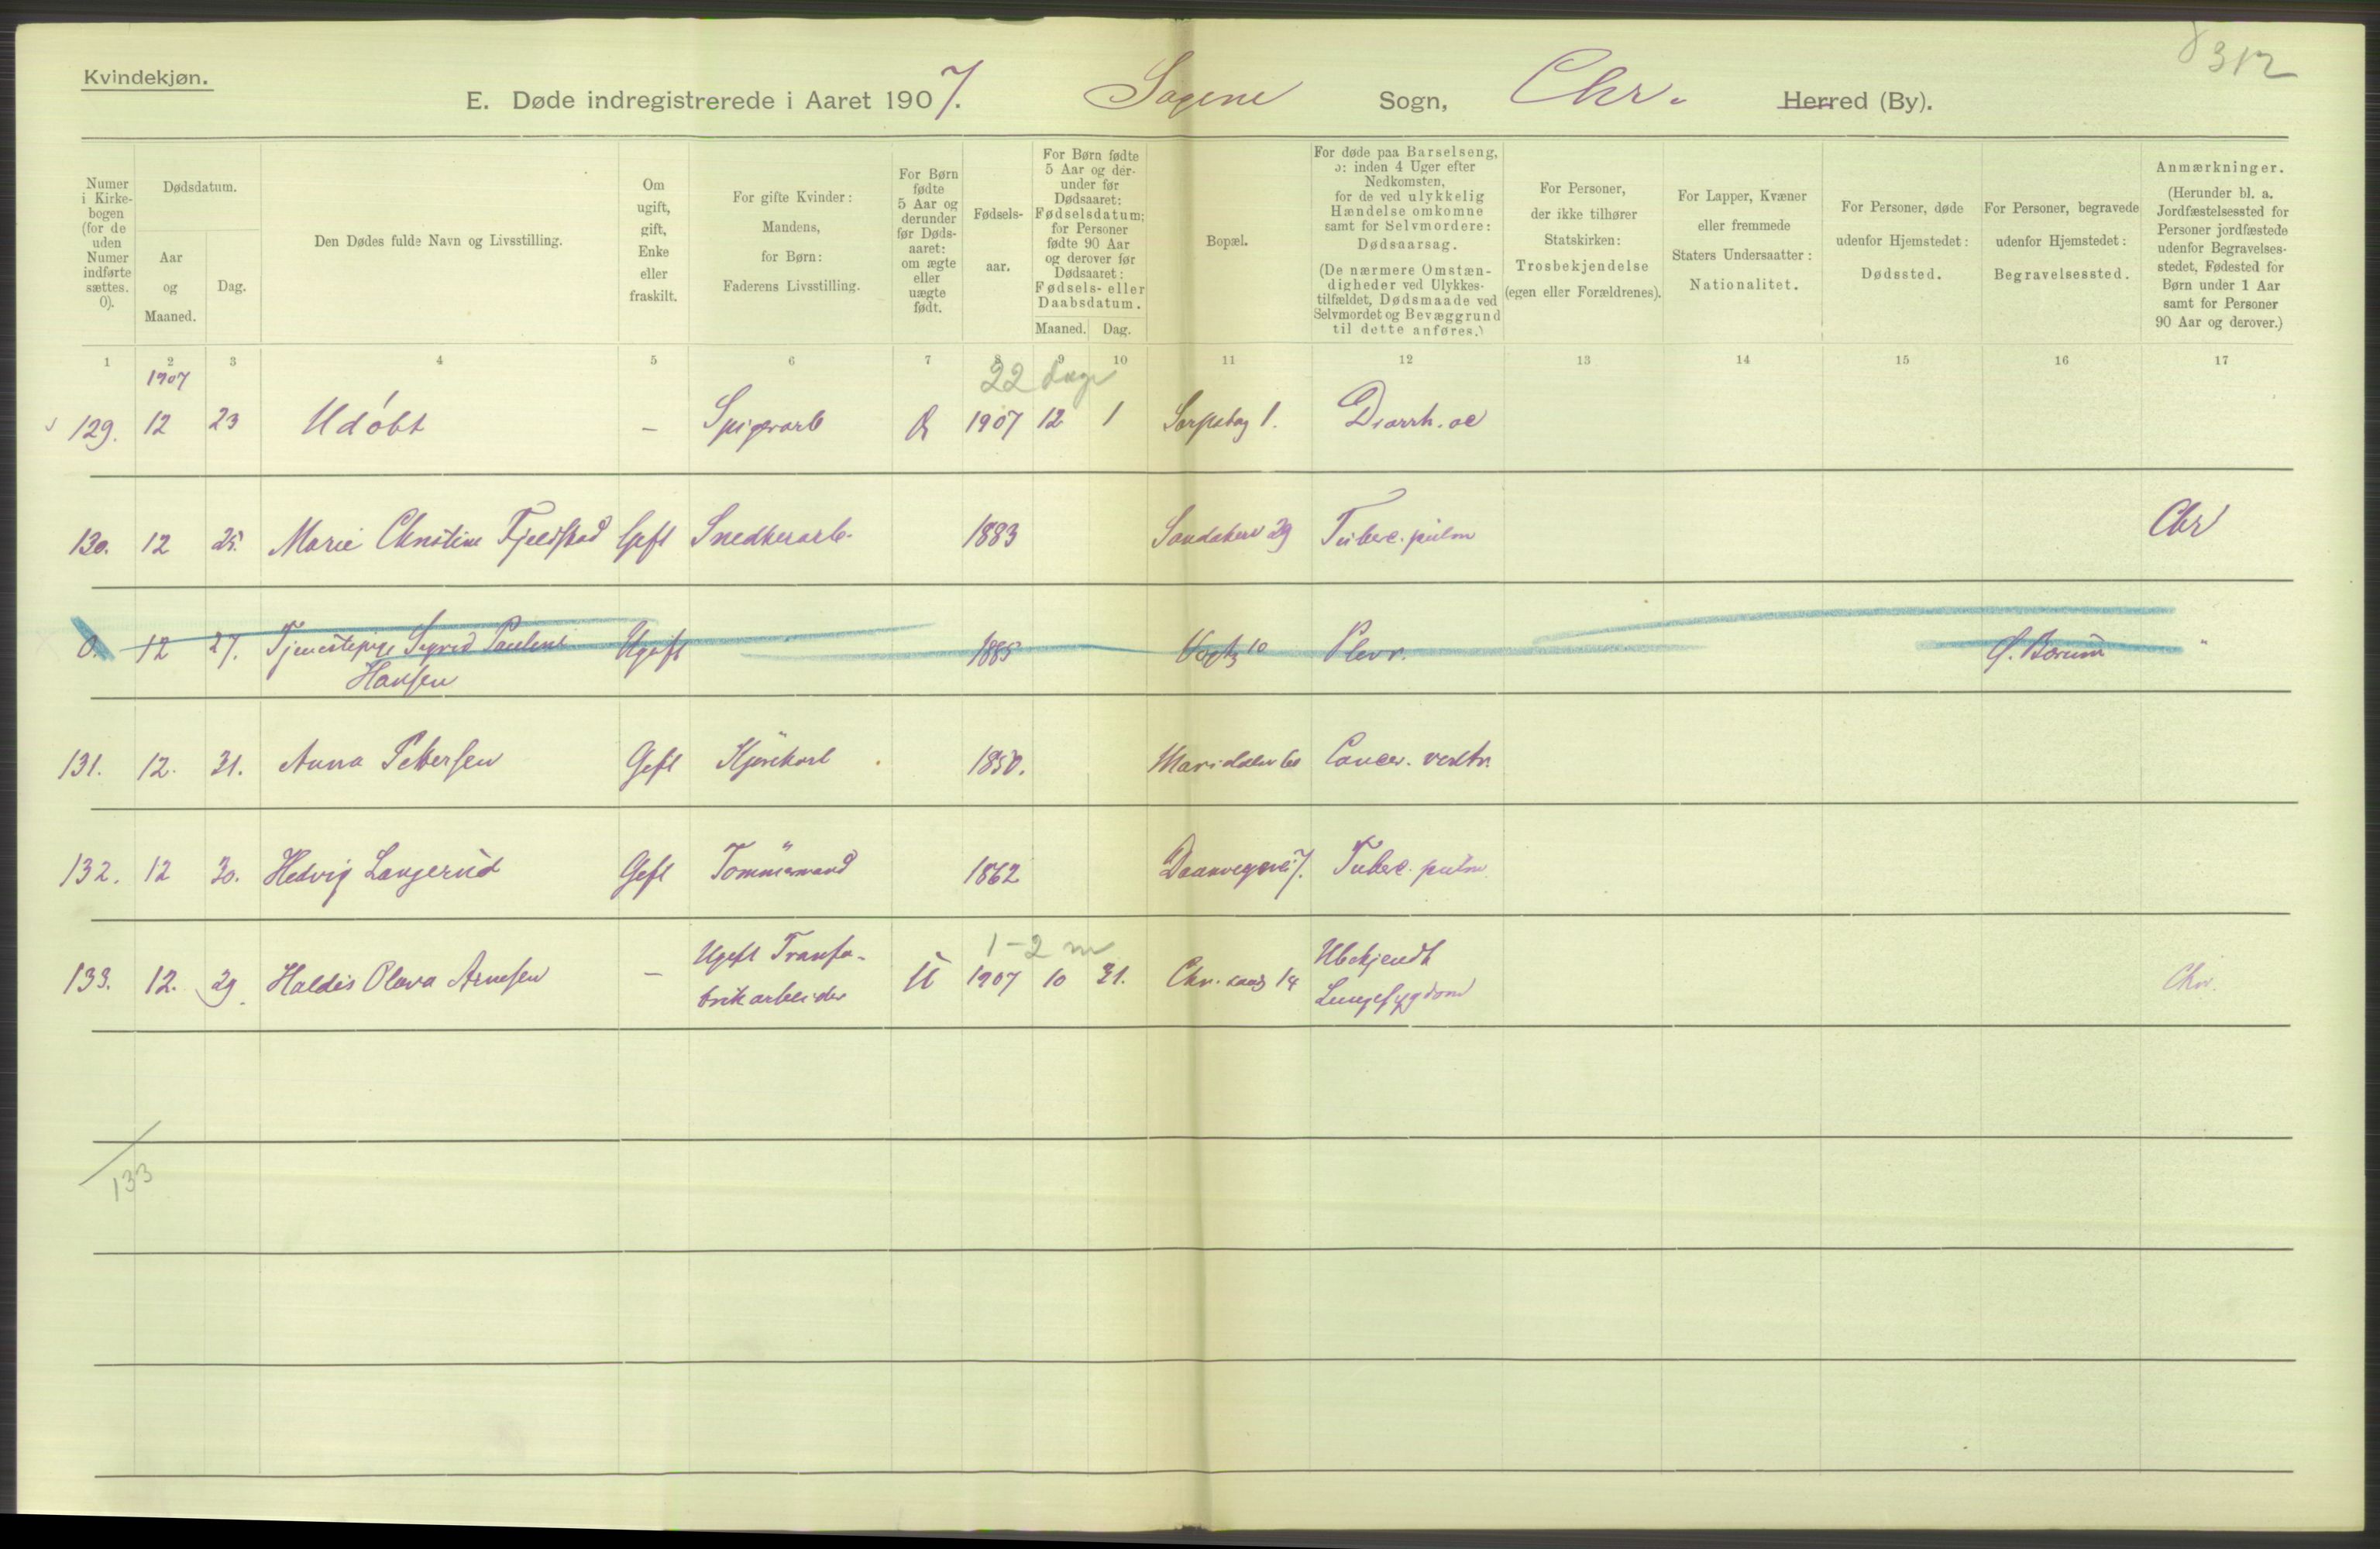 Kvindekjøn.
312
E. Døde indregistrerede i Aaret 1907. Sagene Sogn, Chr. Herred (By).
Numer i Kirke-bogen (for de uden Numer indførte sættes. 0).
Dødsdatum.
Aar og Maaned.
Dag.
Den Dødes fulde Navn og Livsstilling.
Om ugift, gift, Enke eller fraskilt.
For gifte Kvinder: Mandens, for Børn: Faderens Livsstilling.
For Børn fødte 5 Aar og derunder før Døds-aaret: om ægte eller uægte født.
Fødsels-aar.
For Børn fødte 5 Aar og der-under før Dødsaaret: Fødselsdatum; for Personer fødte 90 Aar og derover før Dødsaaret: Fødsels- eller Daabsdatum.
Maaned. Dag.
Bopæl.
For døde paa Barselseng, ɔ: inden 4 Uger efter Nedkomsten, for de ved ulykkelig Hændelse omkomne samt for Selvmordere: Dødsaarsag.
(De nærmere Omstæn-digheder ved Ulykkes-tilfældet, Dødsmaade ved Selvmordet og Bevæggrund til dette anføres.)
For Personer, der ikke tilhører Statskirken: Trosbekjendelse (egen eller Forældrenes).
For Lapper, Kvæner eller fremmede Staters Undersaatter: Nationalitet.
For Personer, døde udenfor Hjemstedet: Dødssted.
For Personer, begravede udenfor Hjemstedet: Begravelsessted.
Anmærkninger.
(Herunder bl. a. Jordfæstelsessted for Personer jordfæstede udenfor Begravelses-stedet, Fødested for Børn under 1 Aar samt for Personer 90 Aar og derover.)
1 2 3 4 5 6 7 8 9 10 11 12 13 14 15 16 17
1907 22 dage
129. 12 23 Udøbt — Spigerarb 1907 12 1 1. Diarrh. ac
130. 12 25. Marie Christine Fjeldstad Gift Snedkerarb. 1883 Sandakerv 29 Tuberc. pulm Chr
0. 12 27. Tjenestepige Sigrid Pauline Ugift 1885 Vogts 10 Plevr. Ø. Bærum "
Hansen
131. 12. 31. Anna Pettersen Gift Kjørekarl 1850. Maridalsv 60 Cancer. ventr.
132. 12 30. Hedvig Langerud Gift Tømmermand 1862 7. Tuberc. pulm.
1-2 m
133. 12. 29. Haldis Olava Arnesen — Ugift Tranfa-
brikarbeider U 1907 10 31. Chr. 14 Ubekjendt
Lungesygdom Chr.
133